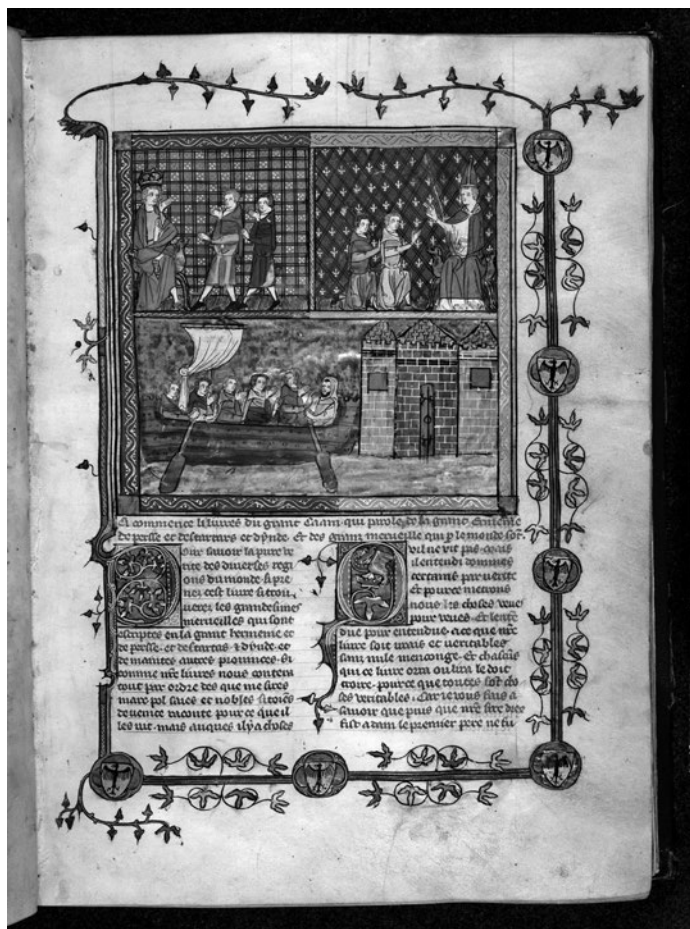 Ci commence li livres du graunt Caam qui parole de la graunt Ermenie
de persse et des tartars et dynde. Et des granz merveille qui p le monde sōt.
Pour savoir la pure ve
rite des diverses regi
ons du monde. Si pre
nez cest livre si trou
uerez les grandesimes
merueilles qui sont
escriptes en la grant hermenie et
de persse. et des tartas. & dynde. et
de maintes autres prouinces. Si
comme nr̄e liures nous contera
tout par ordre des que me sires
marc pol saies et nobles citoiēs
de venice raconte pour ce que il
les vit. mais auques il y a choses
Quil ne vit pas. Mais
il entendi dommes
certains par verite
Et pour ce metrons
nous les choses veues
pour veues. Et lentē
due pour entendue. a ce que nr̄e
liure soit vrais et veritables
sanz nule menconge. Et chascūs
qui ce liure orra ou lira le doit
croire. pour ce que toutes sōt cho
ses veritables. Car ie vous fais a
sauoir que puis que nr̄e sire diex
fist adam le premier pere ne fu